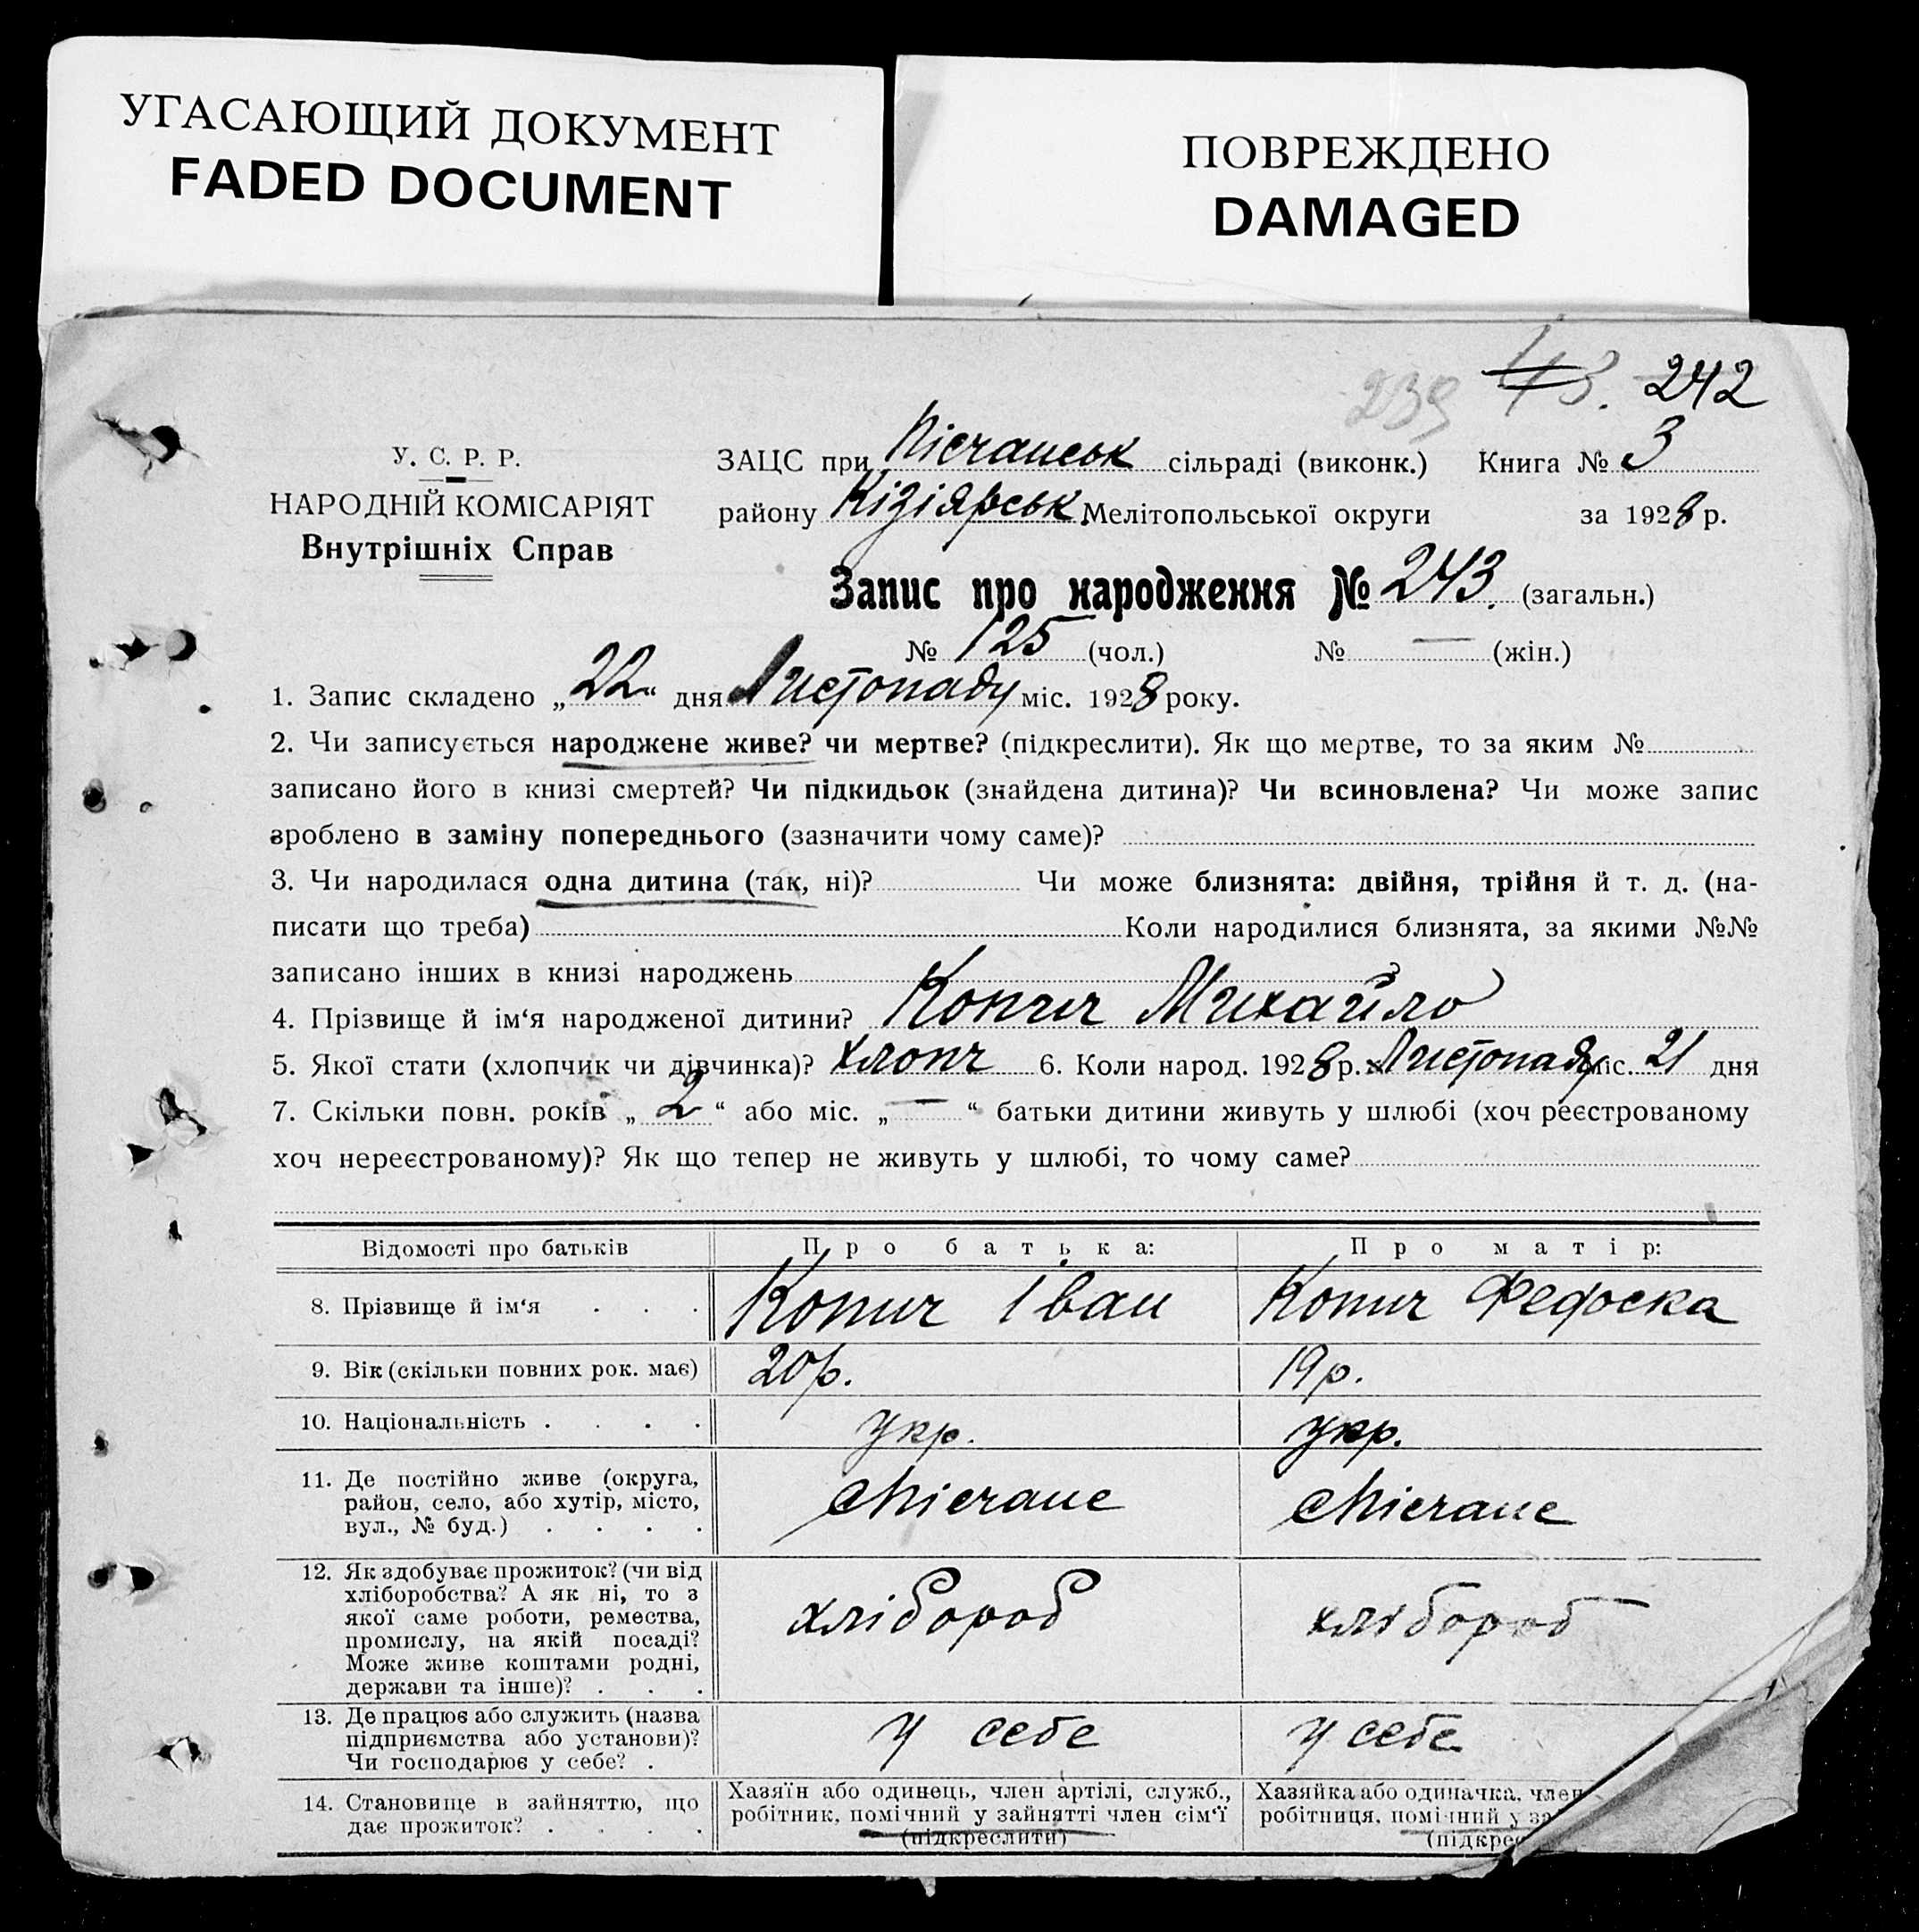 УГАСАЮЩИЙ ДОКУМЕНТ
FADED DOCUMENT
ПОВРЕЖДЕНО
DAMAGED
239 43. 242
У. С. Р. Р.
НАРОДНІЙ КОМІСАРІЯТ
Внутрішніх Справ
ЗАЦС при Пісчанськ сільраді (виконк.) Книга № 3
району Кізіярськ Мелітопольської округи за 1928 р.
Запис про народження № 243. (загальн.)
№ 125 (чол.) № — (жін.)
1. Запис складено „22“ дня Листопаду міс. 1928 року.
2. Чи записується народжене живе? чи мертве? (підкреслити). Як що мертве, то за яким №
записано його в книзі смертей? Чи підкидьок (знайдена дитина)? Чи всиновлена? Чи може запис
зроблено в заміну попереднього (зазначити чому саме)?
3. Чи народилася одна дитина (так, ні)? Чи може близнята: двійня, трійня й т. д. (на-
писати що треба) Коли народилися близнята, за якими №№
записано інших в книзі народжень
4. Прізвище й ім‘я народженої дитини? Копич Михайло
5. Якої стати (хлопчик чи дівчинка)? хлопч 6. Коли народ. 1928 р. Листопаду міс. 21 дня
7. Скільки повн. років „2“ або міс. „—“ батьки дитини живуть у шлюбі (хоч реєстрованому
хоч нереєстрованому)? Як що тепер не живуть у шлюбі, то чому саме?
Відомості про батьків Про батька: Про матір:
8. Прізвище й ім‘я . . . Копич Іван Копич Федоска
9. Вік (скільки повних рок. має) 20 р. 19 р.
10. Національність . . . . укр. укр.
11. Де постійно живе (округа,
район, село, або хутір, місто,
вул., № буд.) . . . .
с Пісчане с Пісчане
12. Як здобуває прожиток? (чи від
хліборобства? А як ні, то з
якої саме роботи, ремества,
промислу, на якій посаді?
Може живе коштами родні,
держави та інше)? . . .
хлібороб хлібороб
13. Де працює або служить (назва
підприємства або установи)?
Чи господарює у себе? .
у себе у себе
14. Становище в зайняттю, що
дає прожиток? . . . .
Хазяїн або одинець, член артілі, служб.,
робітник, помічний у зайнятті член сім‘ї
(підкреслити)
Хазяйка або одиначка, член
робітниця, помічний у за
(підкрес